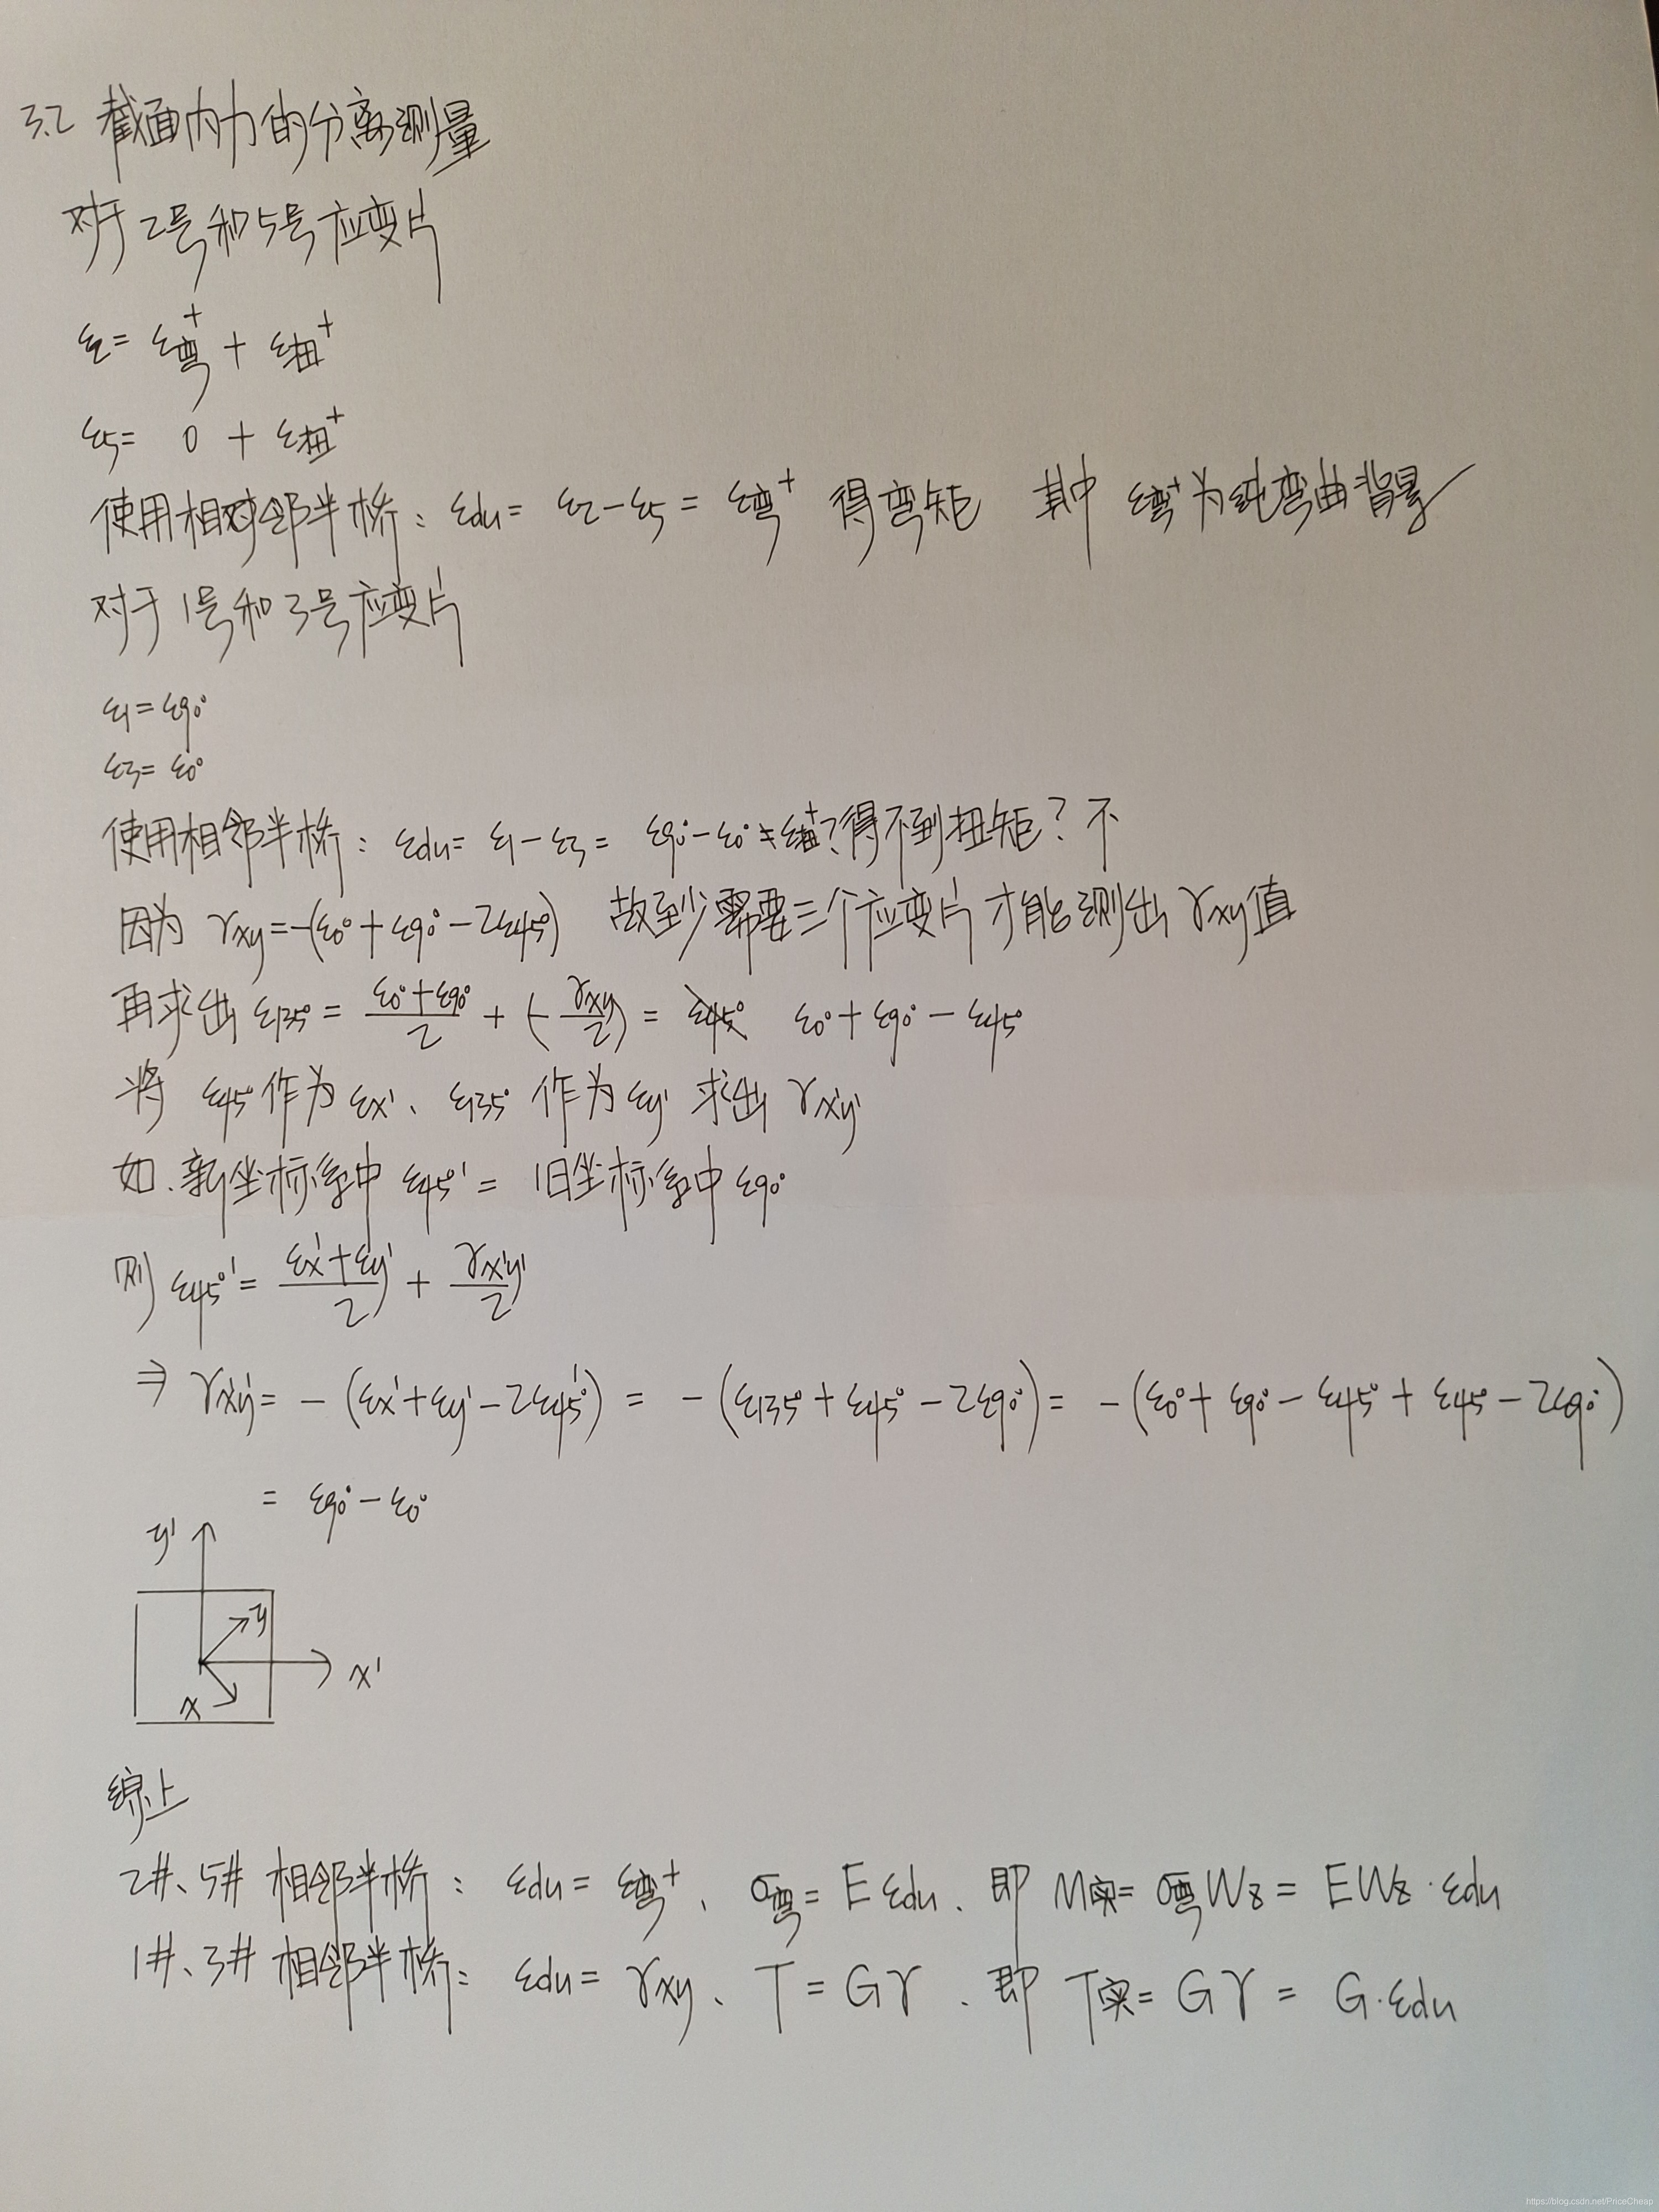 3.2 截面内力的分离测量
对于2号和5号应变片
ε2= ε弯⁺ + ε扭⁺
ε5= 0 + ε扭⁺
使用相邻半桥: εdu= ε2-ε5 = ε弯⁺ 得弯矩 其中 ε弯⁺为纯弯曲背景
对于1号和3号应变片
ε1=ε90°
ε3= ε0°
使用相邻半桥: εdu= ε1-ε3= ε90°-ε0°≠ε扭⁺?得不到扭矩?不
因为 γxy=-(ε0°+ε90°-2ε45°) 故至少需要三个应变片才能测出γxy值
再求出 ε135° = (ε0°+ε90°)/2 + (-γxy/2) = ε0°+ε90°-ε45°
将 ε45°作为εx'、ε135°作为εy' 求出 γx'y'
如.新坐标系中 ε45°' = 旧坐标系中ε90°
则 ε45°' = (εx'+εy')/2 + γx'y'/2
⇒ γx'y' = -(εx'+εy'-2ε45°') = -(ε135°+ε45°-2ε90°) = -(ε0°+ε90°-ε45°+ε45°-2ε90°)
= ε90°-ε0°
y'
y
x'
x
综上
2#、5# 相邻半桥: εdu= ε弯⁺、σ弯= Eεdu、即 M实= σ弯Wz = EWz·εdu
1#、3# 相邻半桥: εdu= γxy、T = Gγ、即 T实= Gγ = G·εdu
https://blog.csdn.net/PriceCheap